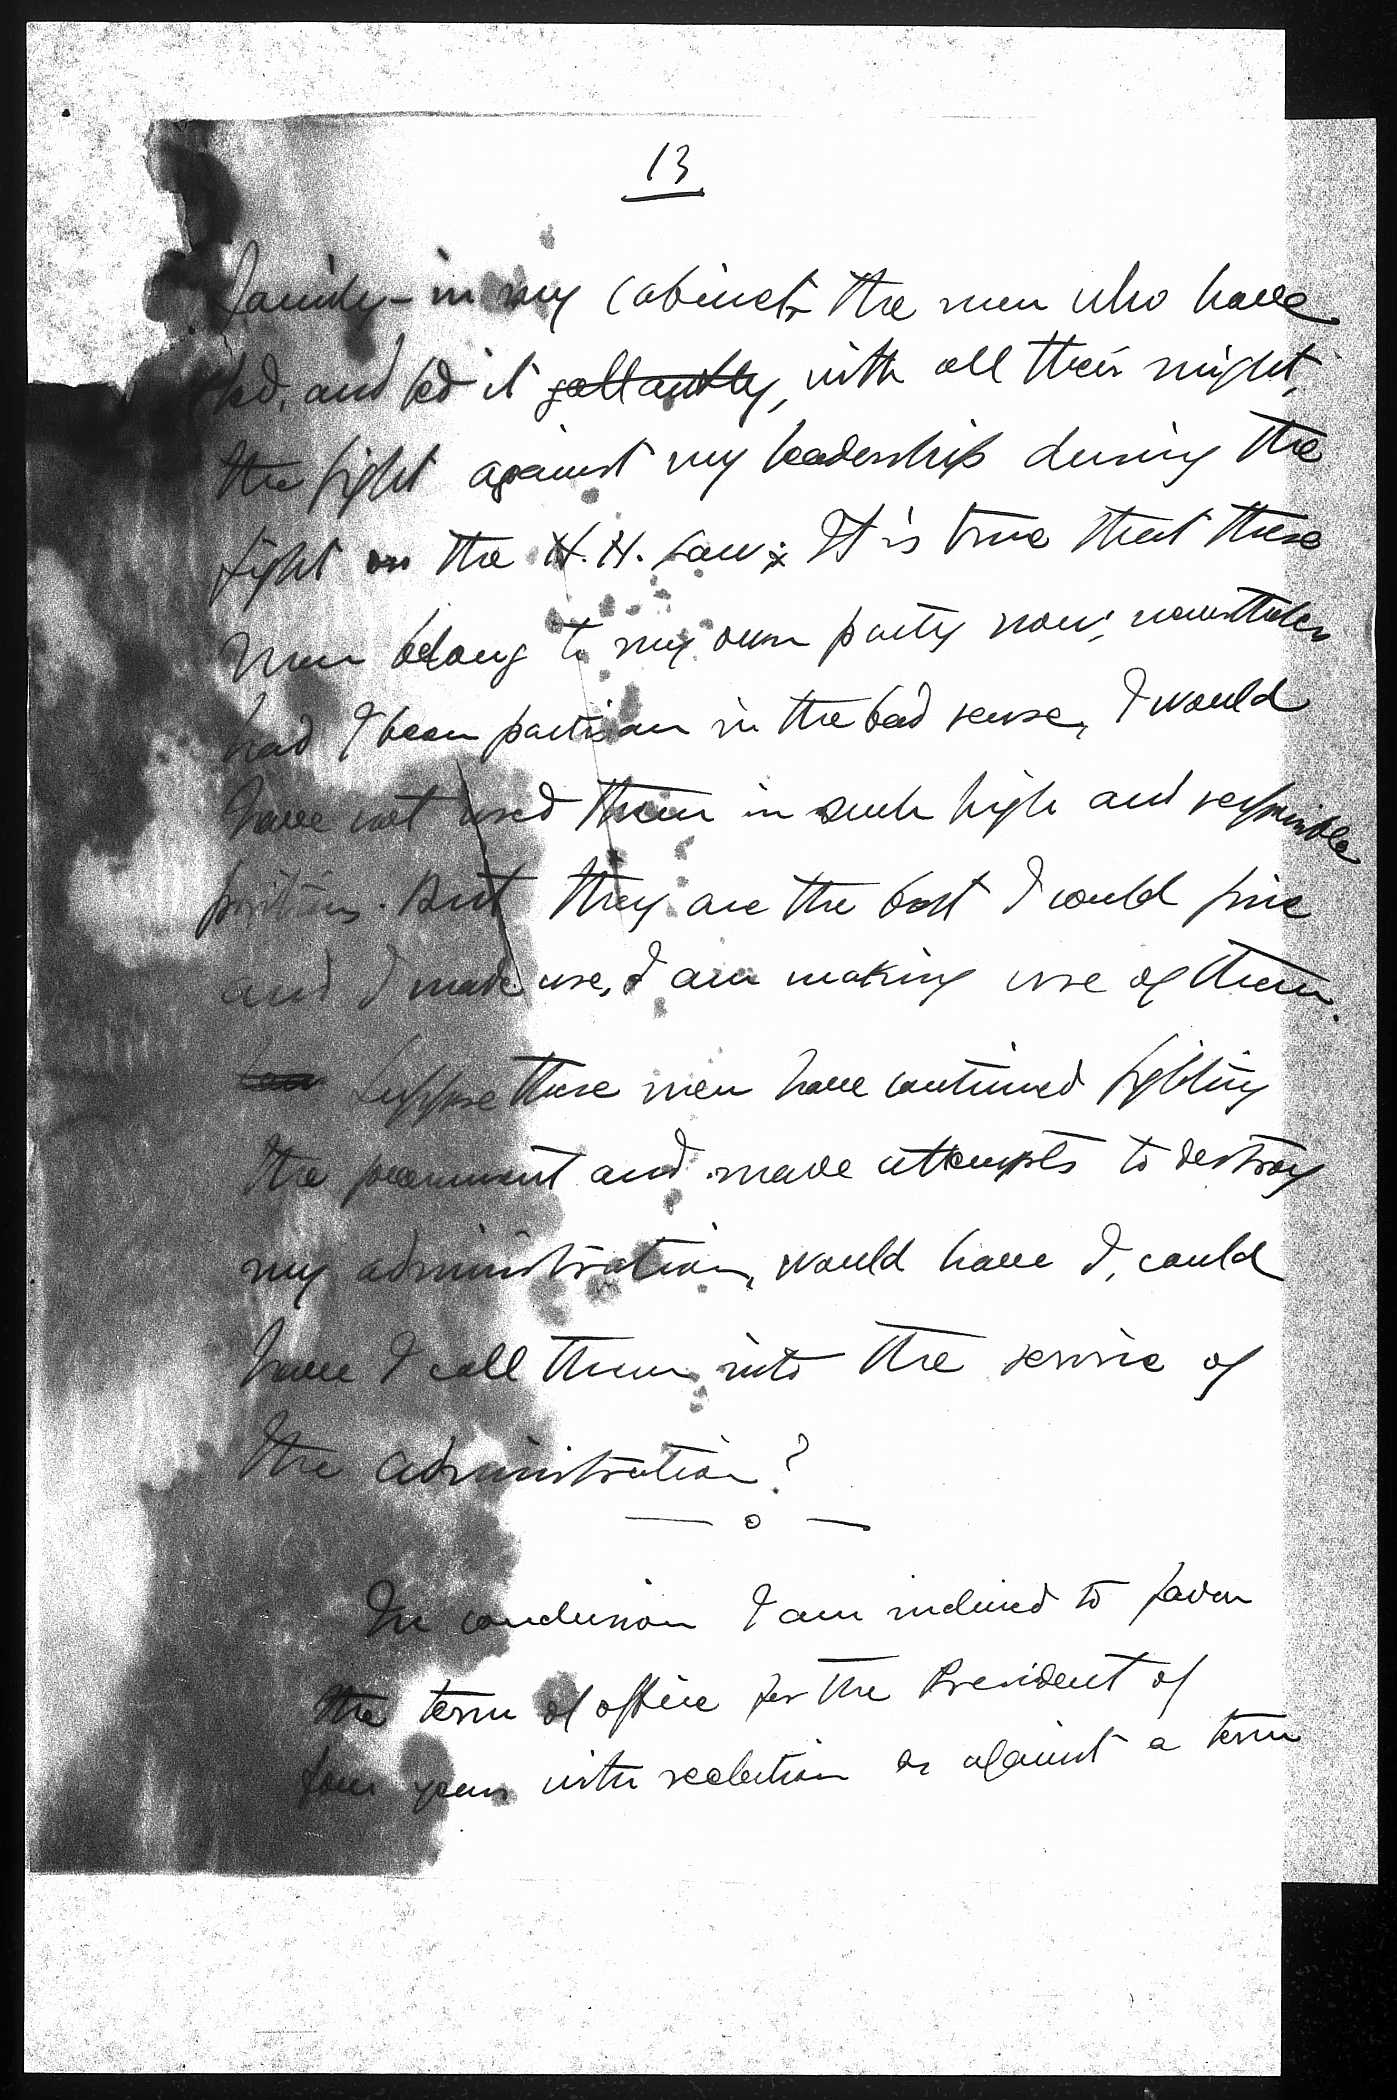 13
family - in my cabinet - the men who have
led, and led it gallantly, with all their might,
the fight against my leadership during the
fight on the H. H. Law; It is true that these
men belong to my own party now; nevertheless
had I been partisan in the bad sense, I would
have not used them in such high and responsible
positions. But they are the best I could find
and I made use, I am making use of them.
Suppose these men have continued fighting
the government and made attempts to destroy
my administration, would have I, could
have I call them into the service of
the administration?
— o —
In conclusion I am inclined to favor
the term of office for the President of
four years with reelection as against a term